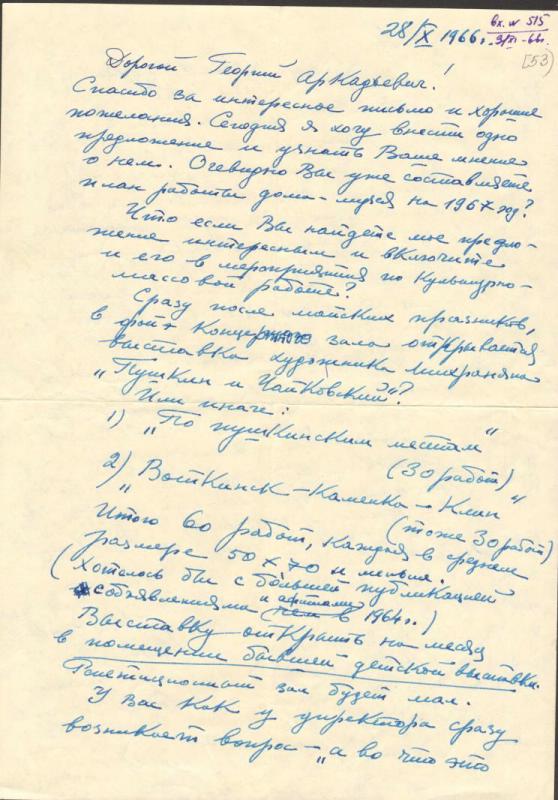 28/X 1966 г.
вх. № 515
3/XI-66г.
[53]
Дорогой Георгий Аркадьевич!
Спасибо за интересное письмо и хорошие
пожелания. Сегодня я хочу внести одно
предложение и узнать Ваше мнение
о нем. Очевидно Вы уже составляете
план работы дома-музея на 1967 год?
Что если Вы найдете мое предло-
жение интересным и включите
и его в мероприятия по культурно-
массовой работе?
Сразу после майских празников,
в фойэ концертного зала открывается
выставка художника
„Пушкин и Чайковский"?
Или иначе:
1) „По пушкинским местам"
(30 работ)
2) „Воткинск – Каменка – Клин"
(тоже 30 работ)
Итого 60 работ, каждая в среднем
размере 50 × 70 и меньше.
(Хотелось бы с бо́льшей публикацией
объявлениями и афишами чем в 1964 г.)
Выставку открыть на месяц
в помещении бывшей детской выставки.
зал будет мал.
У Вас как у директора сразу
возникает вопрос – „а во что это